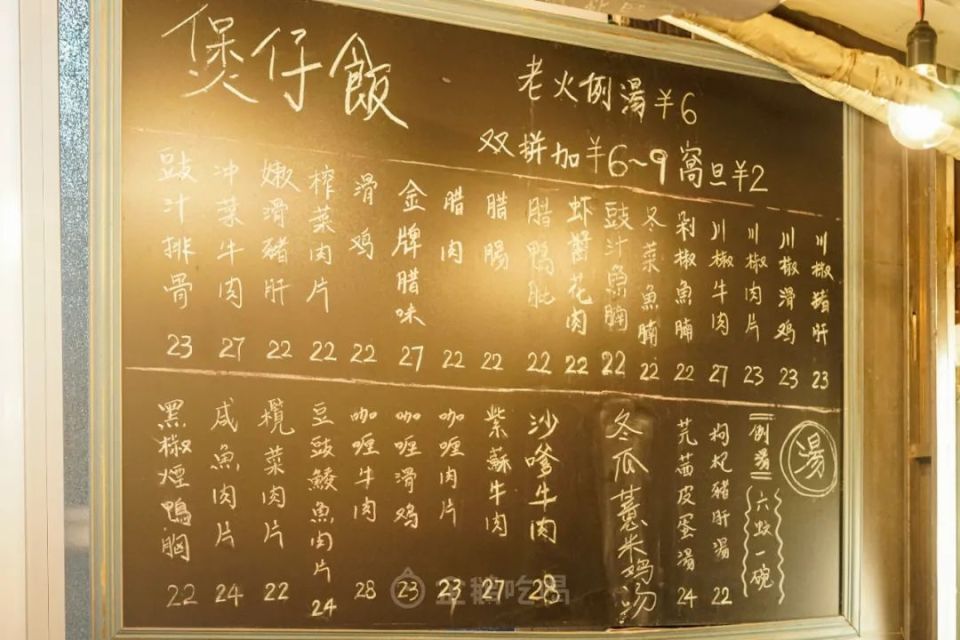 煲仔飯
老火例湯¥6
双拼加¥6~9 窩旦¥2
豉汁排骨 23
冲菜牛肉 27
嫩滑豬肝 22
榨菜肉片 22
滑鸡 22
金牌腊味 27
腊肉 22
腊腸 22
腊鴨肶 22
虾醬花肉 22
豉汁魚腩 22
冬菜魚腩 22
剁椒魚腩 22
川椒牛肉 27
川椒肉片 23
川椒滑鸡 23
川椒猪肝 23
黑椒煙鴨胸 22
咸魚肉片 24
欖菜肉片 22
豆豉鯪魚肉片 24
咖喱牛肉 28
咖喱滑鸡 23
咖喱肉片 23
紫蘇牛肉 27
沙嗲牛肉 28
湯
例湯
六蚊一碗
枸杞豬肝湯 22
芫茜皮蛋湯 24
冬瓜薏米鸡汤
企鹅吃喝